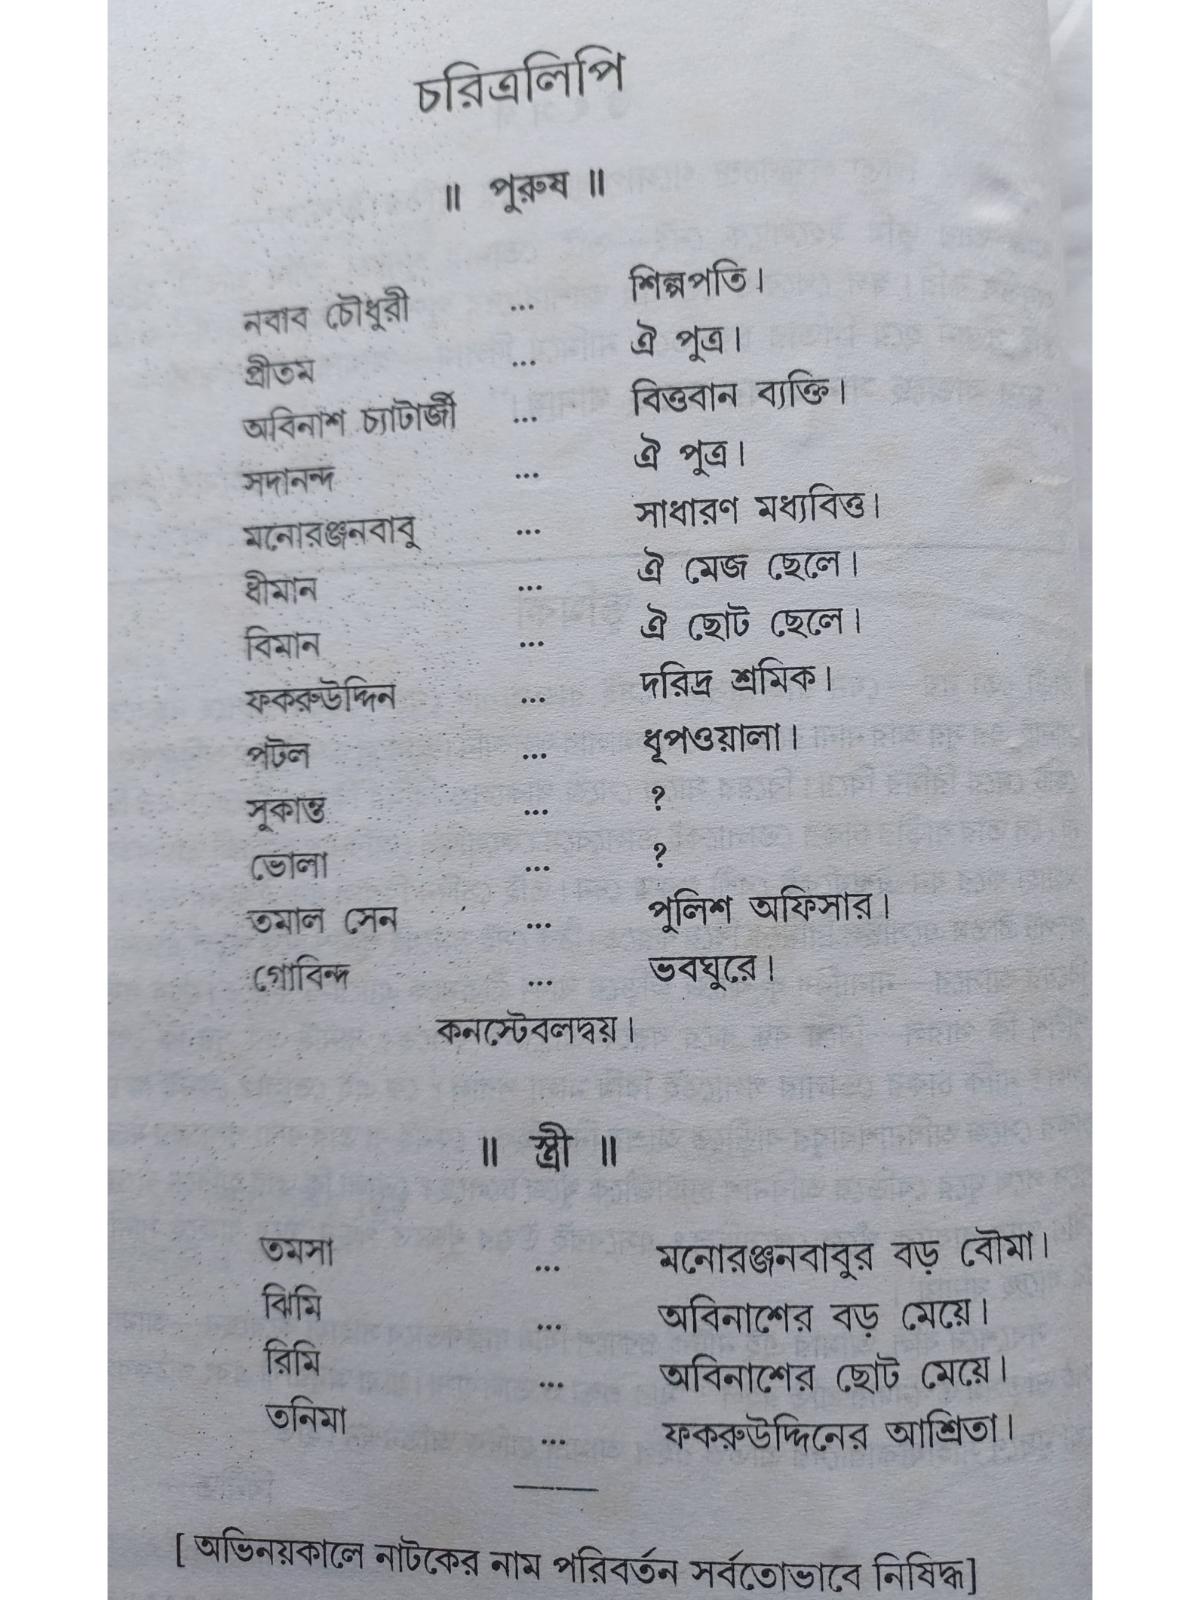 চরিত্রলিপি
॥ পুরুষ ॥
নবাব চৌধুরী ... শিল্পপতি।
প্রীতম ... ঐ পুত্র।
অবিনাশ চ্যাটার্জী ... বিত্তবান ব্যক্তি।
সদানন্দ ... ঐ পুত্র।
মনোরঞ্জনবাবু ... সাধারণ মধ্যবিত্ত।
ধীমান ... ঐ মেজ ছেলে।
বিমান ... ঐ ছোট ছেলে।
ফকরুউদ্দিন ... দরিদ্র শ্রমিক।
পটল ... ধূপওয়ালা।
সুকান্ত ... ?
ভোলা ... ?
তমাল সেন ... পুলিশ অফিসার।
গোবিন্দ ... ভবঘুরে।
কনস্টেবলদ্বয়।
॥ স্ত্রী ॥
তমসা ... মনোরঞ্জনবাবুর বড় বৌমা।
ঝিমি ... অবিনাশের বড় মেয়ে।
রিমি ... অবিনাশের ছোট মেয়ে।
তনিমা ... ফকরুউদ্দিনের আশ্রিতা।
[ অভিনয়কালে নাটকের নাম পরিবর্তন সর্বতোভাবে নিষিদ্ধ]